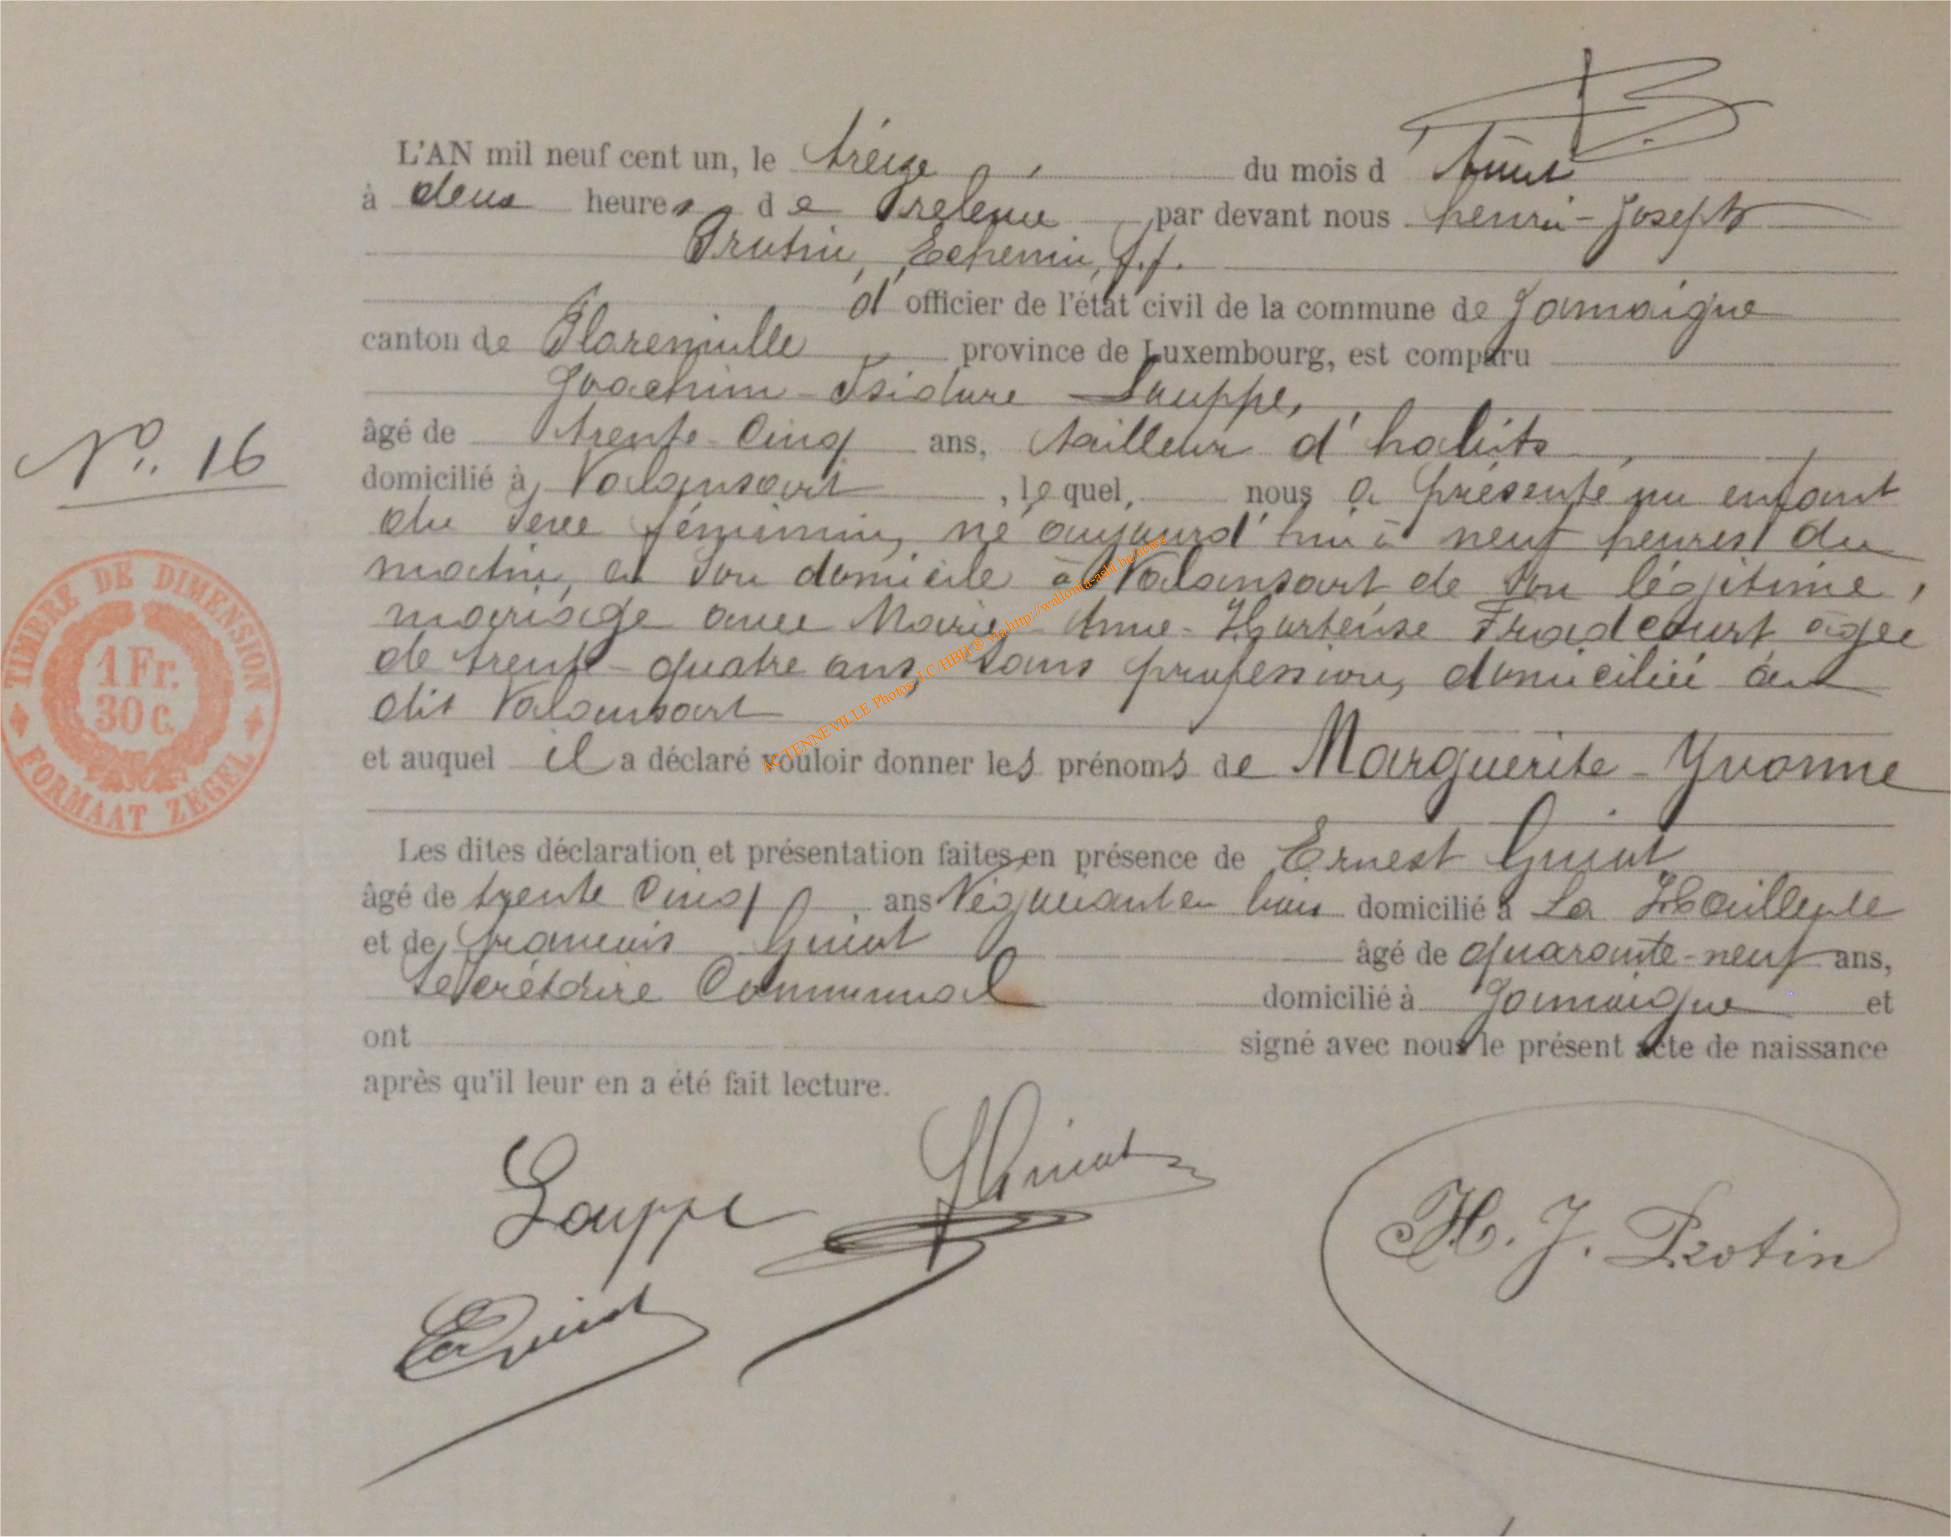 L'AN mil neuf cent un, le treize du mois d'Août
à deux heures de Relevée par devant nous henri-Joseph
Protin, Echevin, f.f.
d'officier de l'état civil de la commune de Jamoigne
canton de Florenville province de Luxembourg, est comparu
Joachim-Isidore Louppe,
âgé de trente-Cinq ans, tailleur d'habits,
N°. 16
domicilié à Valansart, lequel, nous a présenté un enfant
du Sexe féminin, né aujourd'hui à neuf heures du
matin, en Son domicile à Valansart de Son légitime
mariage avec Marie-Anne-Hortense Fradcourt âgée
de trente-quatre ans, Sans profession, domiciliée au
dit Valansart
et auquel il a déclaré vouloir donner les prénoms de Marguerite-Yvonne
TIMBRE DE DIMENSION
1 Fr.
30 c.
FORMAAT ZEGEL
Les dites déclaration et présentation faites en présence de Ernest Guiot
âgé de trente Cinq ans Négociant en bois domicilié à La Hailleule
et de françois Guiot âgé de quarante-neuf ans,
Secrétaire Communal domicilié à Jamoigne et
ont signé avec nous le présent acte de naissance
après qu'il leur en a été fait lecture.
Louppe Guiot
H. J. Protin
E Guiot
TENNEVILLE Photos J.C/HBH® via http://wallonia-asbl.be.news